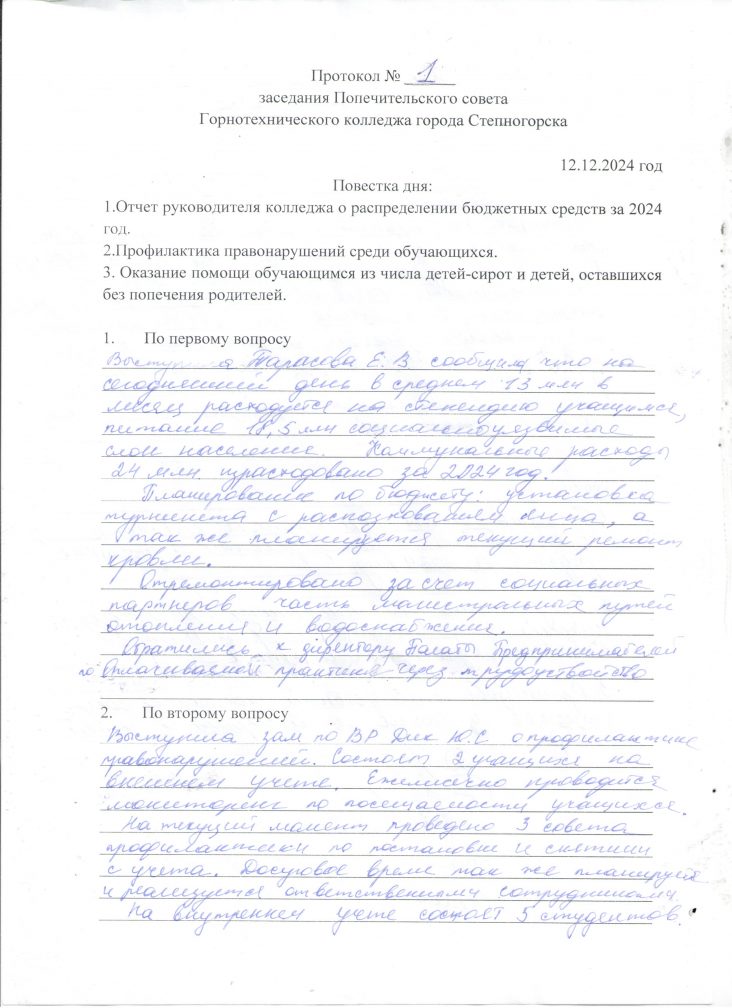 Протокол № 1
заседания Попечительского совета
Горнотехнического колледжа города Степногорска
12.12.2024 год
Повестка дня:
1.Отчет руководителя колледжа о распределении бюджетных средств за 2024
год.
2.Профилактика правонарушений среди обучающихся.
3. Оказание помощи обучающимся из числа детей-сирот и детей, оставшихся
без попечения родителей.
1. По первому вопросу
Тарасова Е. В. сообщила что на
сегодняшний день в среднем 13 млн в
месяц расходуется на стипендию учащимся,
питание 18,5 млн социальноуязвимые
слои население. Коммунальные расходы
24 млн израсходовано за 2024 год.
Планирование по бюджету: установка
турникета с распознованием лица, а
так же планируется текущий ремонт
кровли.
Отремонтировано за счет социальных
партнеров часть магистральных путей
отопления и водоснабжения.
Обратились к директору Палаты Предпринимателей
по оплачиваемой практике через трудоустройство
2. По второму вопросу
Выступила зам по ВР Дик Ю.С о профилактике
правонарушений. Состоят 2 учащихся на
внешнем учете. Ежемесячно проводится
мониторинг по посещаемости учащихся.
На текущий момент проведено 3 совета
профилактики по постановке и снятии
с учета. Досуговое время так же планируется
и реализуется ответственными сотрудниками.
На внутреннем учете состоят 5 студентов.